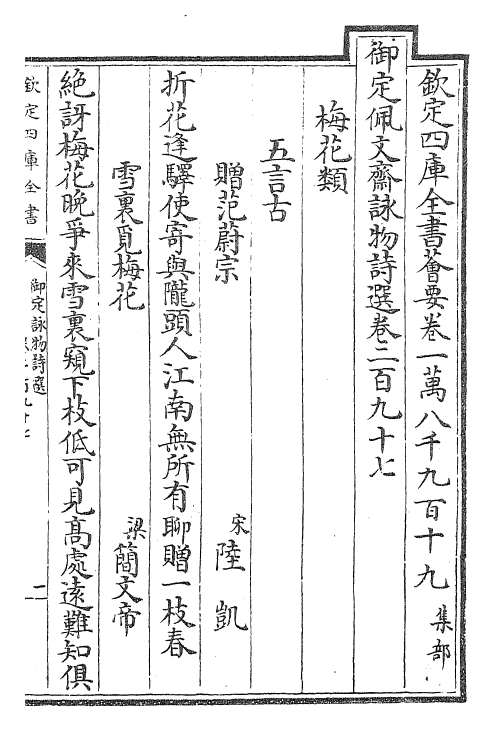 欽定四庫全書薈要卷一萬八千九百十九 集部
御定佩文齋詠物詩選卷二百九十七
梅花類
五言古
贈范蔚宗 宋 陸凱
折花逢驛使寄與隴頭人江南無所有聊贈一枝春
雪裏覓梅花 梁 簡文帝
絶訝梅花晚爭來雪裏窺下枝低可見髙處遠難知俱
欽定四庫全書
御定詠物詩選